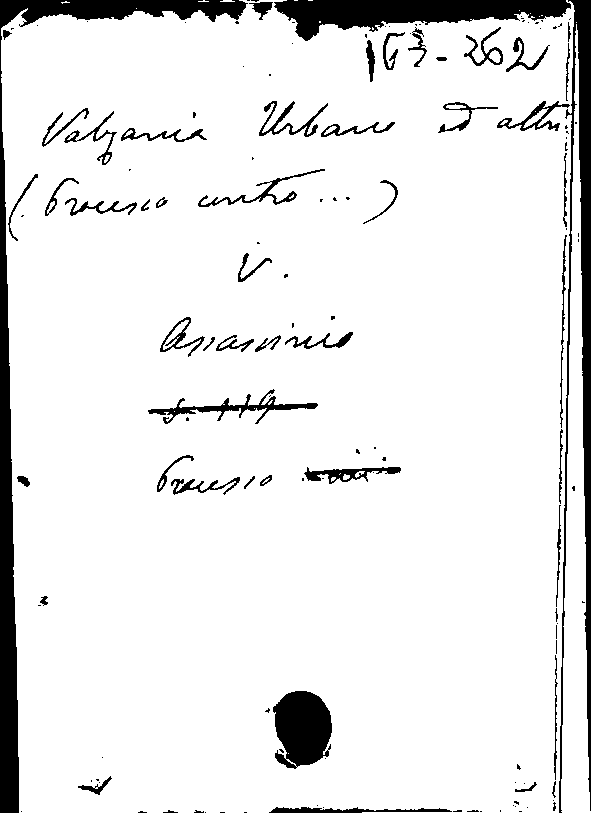 163-262
Valzania Urbano ed altri
(Processo contro...)
V.
Assassinio
S. 119
Processo